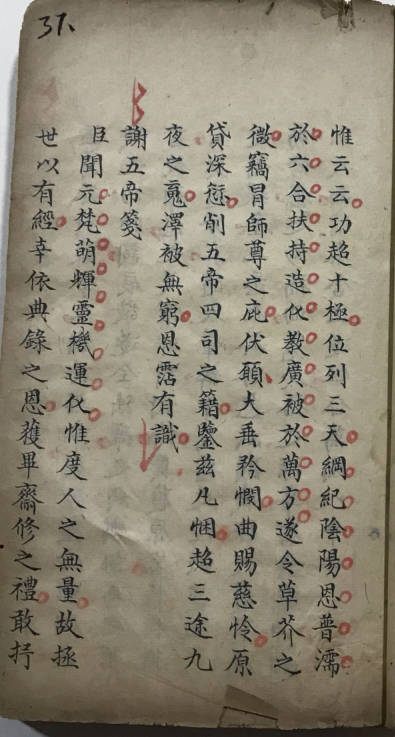 37.
惟云云功超十極位列三天綱紀陰陽恩普濡
於六合扶持造化教廣被於萬方遂令草芥之
微竊冒師尊之庇伏願大垂矜憫曲賜慈怜原
貸深愆削五帝四司之籍鑒茲凡悃超三途九
夜之冤澤被無窮恩霑有識
謝五帝箋
臣聞元梵萌輝靈機運化惟度人之無量故拯
世以有經幸依典錄之恩獲畢齋修之禮敢抒